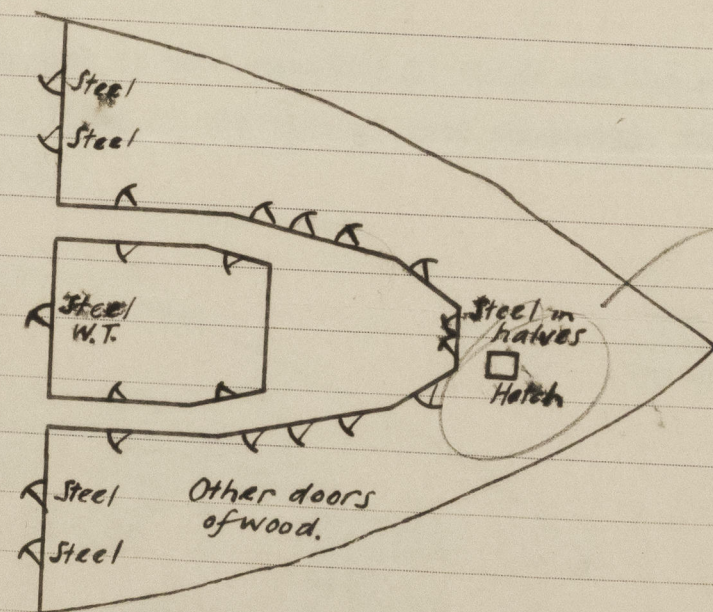 Steel
Steel
Steel
W.T.
Steel in
halves
Hatch
Steel
Steel
Other doors
of wood.